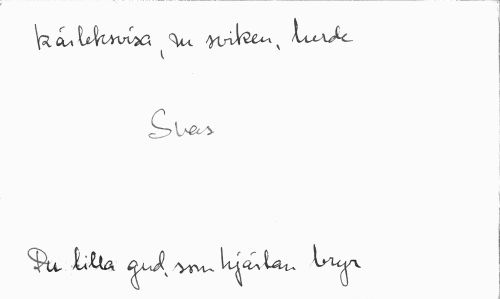 kärleksvisa, en sviken, herde
Svas
Du lilla gud, som hjärtan bryr